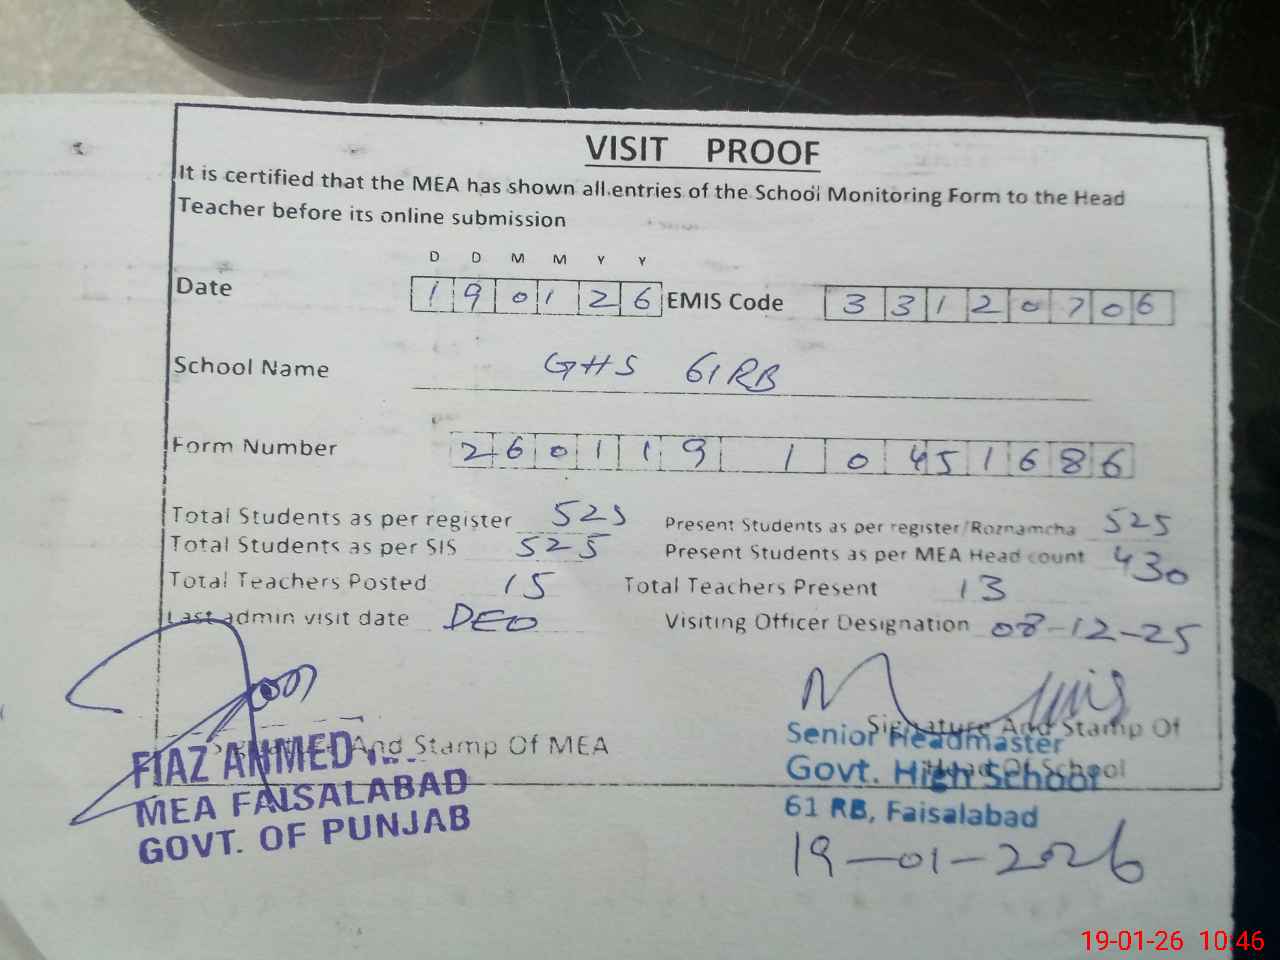 VISIT PROOF
It is certified that the MEA has shown all entries of the School Monitoring Form to the Head
Teacher before its online submission
D D M M Y Y
Date 190126 EMIS Code 33120706
School Name GHS 61RB
Form Number 260119 1 0451686
Total Students as per register 525 Present Students as per register/Roznamcha 525
Total Students as per SIS 525 Present Students as per MEA Head count 430
Total Teachers Posted 15 Total Teachers Present 13
Last admin visit date DEO Visiting Officer Designation 08-12-25
Signature And Stamp Of MEA
FIAZ AHMED
MEA FAISALABAD
GOVT. OF PUNJAB
Signature And Stamp Of
Head Of School
Senior Headmaster
Govt. High School
61 RB, Faisalabad
19-01-2026
19-01-26 10:46